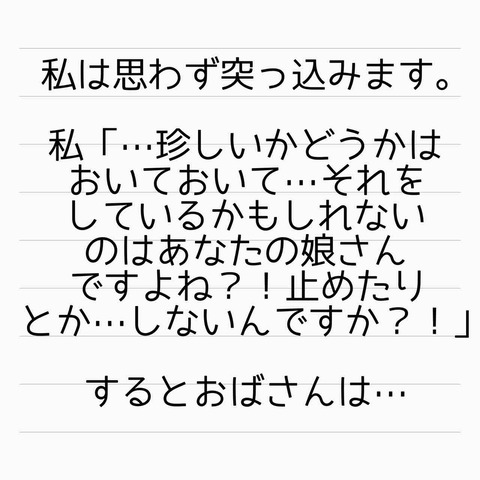 私は思わず突っ込みます。
私「…珍しいかどうかは
おいておいて…それを
しているかもしれない
のはあなたの娘さん
ですよね？！止めたり
とか…しないんですか？！」
するとおばさんは…